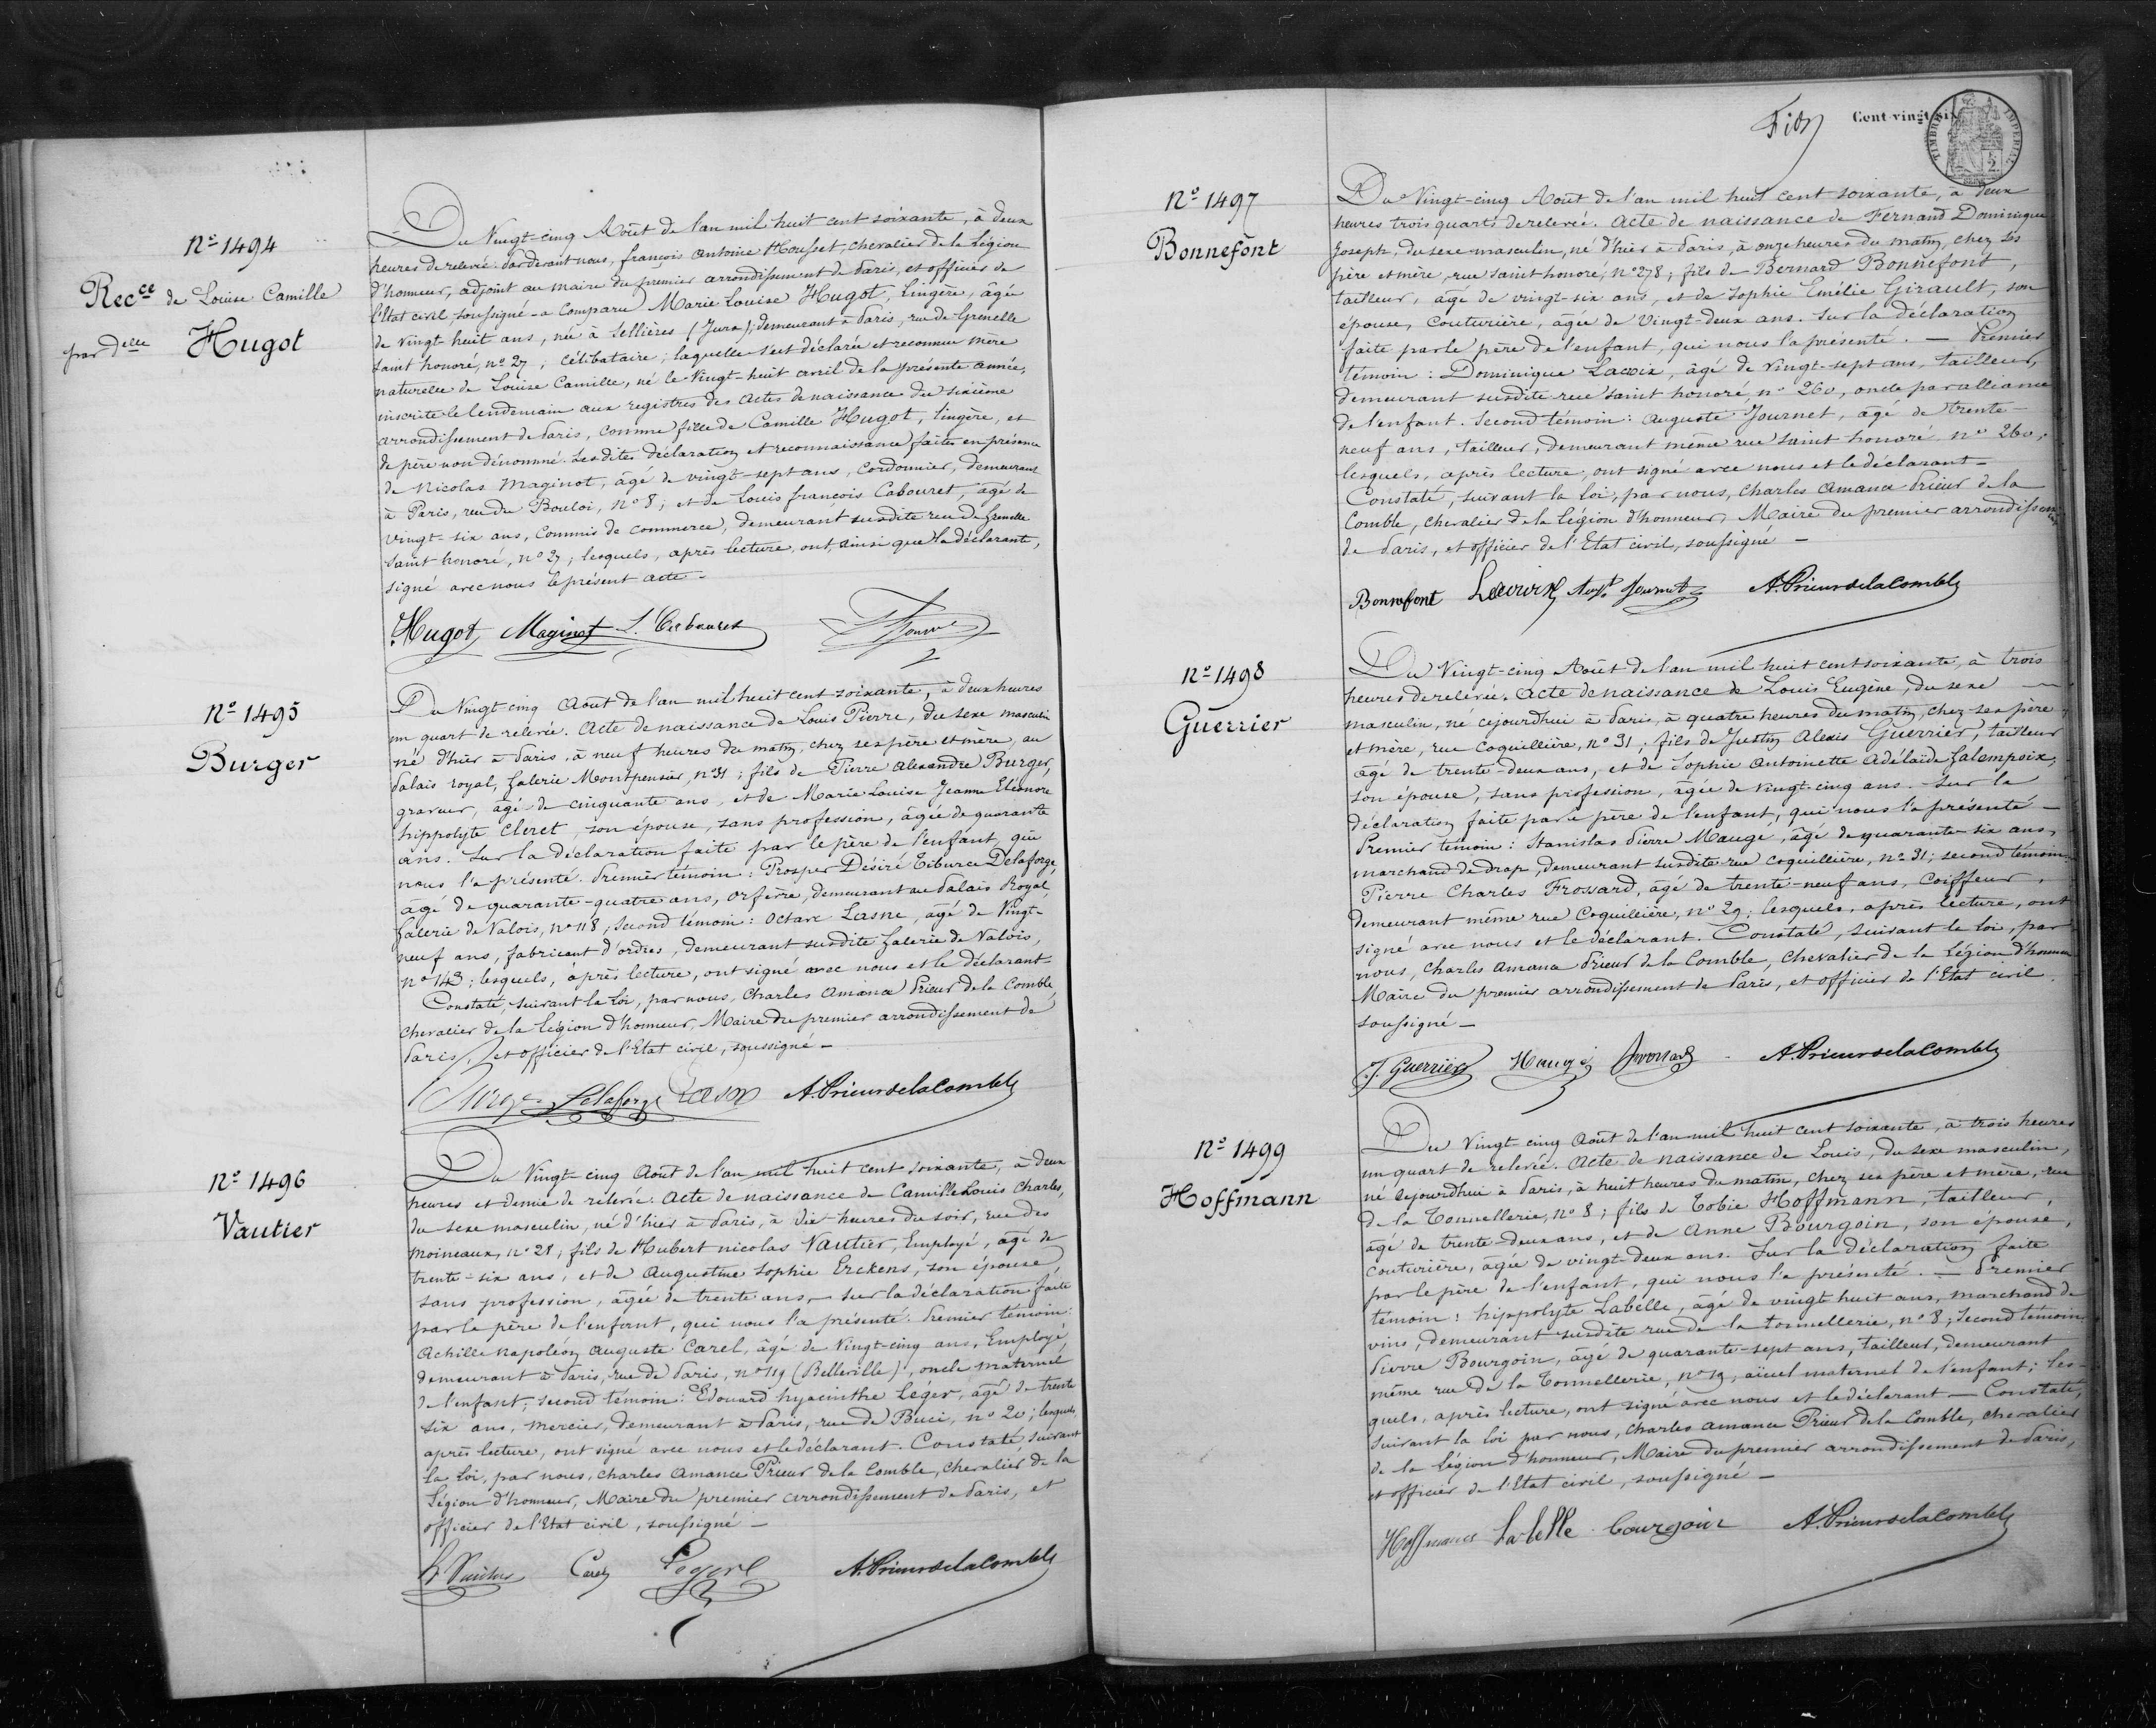 Nº 1494
Recce de Louise Camille
par Delle Hugot
Du Vingt-cinq Août de l'an mil huit cent soixante, à deux
heures de relevée. Pardevant nous, françois Antoine Housset, chevalier de la Légion
d'honneur, adjoint au maire du premier arrondissement de Paris, et officier de
l'Etat civil, soussigné - a Comparu Marie Louise Hugot, lingère, âgée
de Vingt huit ans, née à Sellières (Jura); demeurant à Paris, rue de Grenelle
saint honoré, nº 27, célibataire; laquelle s'est déclarée et reconnue mère
naturelle de Louise Camille, né le Vingt-huit avril de la présente année,
inscrite le lendemain aux registres des Actes de naissance du sixième
arrondissement de Paris, comme fille de Camille Hugot, lingère, et
de père non dénommé. Lesdites déclaration et reconnaissance faites en présence
de Nicolas Maginot, âgé de vingt-sept ans, Cordonnier, demeurant
à Paris, rue du Bouloi, nº 8; et de Louis françois Cabouret, âgé de
vingt-six ans, Commis de commerce, demeurant susdite rue de Grenelle
saint honoré, nº 27; lesquels, après lecture, ont, ainsi que la déclarante,
signé avec nous le présent acte -
Hugot Maginot L. Cabouret
Nº 1495
Burger
Du Vingt-cinq Août de l'an mil huit cent soixante, à deux heures
un quart de relevée. Acte de naissance de Louis Pierre, du sexe masculin
né d'hier à Paris, à neuf heures du matin, chez ses père et mère, au
Palais royal, Galerie Montpensier, nº 31; fils de Pierre Alexandre Burger,
graveur, âgé de cinquante ans, et de Marie Louise Jeanne Eléonore
hippolyte Cleret, son épouse, sans profession, âgée de quarante
ans. Sur la déclaration faite par le père de l'enfant, qui
nous l'a présenté. Premier témoin: Prosper Désiré Tiburce Delaforge,
âgé de quarante-quatre ans, orfèvre, demeurant au Palais Royal,
Galerie de Valois, nº 118; Second témoin: Octave Lasne, âgé de Vingt-
neuf ans, fabricant d'ordres, demeurant susdite Galerie de Valois,
nº 143; lesquels, après lecture, ont signé avec nous et le déclarant-
Constaté, suivant la loi, par nous, Charles Amance Prieur de la Comble,
chevalier de la Légion d'honneur, Maire du premier arrondissement de
Paris, et officier de l'Etat civil, soussigné -
Burger Delaforge Lasne A. Prieur de la Comble
Nº 1496
Vautier
Du Vingt-cinq Août de l'an mil huit cent soixante, à deux
heures et demie de relevée. Acte de naissance de Camille Louis Charles,
du sexe masculin, né d'hier à Paris, à dix heures du soir, rue des
Moineaux, nº 28; fils de Hubert Nicolas Vautier, Employé, âgé de
trente-six ans, et de Augustine Sophie Erckens, son épouse
sans profession, âgée de trente ans, - sur la déclaration faite
par le père de l'enfant, qui nous l'a présenté. Premier témoin:
Achille Napoléon Auguste Carel, âgé de Vingt-cinq ans, Employé,
demeurant à Paris, rue de Paris, nº 119 (Belleville), oncle maternel
de l'enfant; second témoin: Edouard hyacinthe Léger, âgé de trente
six ans, mercier, demeurant à Paris, rue de Buci, nº 20; lesquels,
après lecture, ont signé avec nous et le déclarant. Constaté, suivant
la loi, par nous, Charles Amance Prieur de la Comble, Chevalier de la
Légion d'honneur, Maire du premier arrondissement de Paris, et
officier de l'Etat civil, soussigné -
h Vautier Carel Leger A. Prieur de la Comble
Cent-vingt-six
TIMBRE IMPERIAL
Nº 1497
Bonnefont
Du Vingt-cinq Août de l'an mil huit cent soixante, à deux
heures trois quarts de relevée. Acte de naissance de Fernand Dominique
Joseph, du sexe masculin, né d'hier à Paris, à onze heures du matin, chez ses
père et mère, rue saint honoré, nº 278; fils de Bernard Bonnefont,
tailleur, âgé de vingt-six ans, et de Sophie Emélie Girault, son
épouse, Couturière, âgée de Vingt-deux ans. Sur la déclaration
faite par le père de l'enfant, qui nous l'a présenté. - Premier
témoin: Dominique Lacoix, âgé de vingt-sept ans, tailleur,
demeurant susdite rue saint honoré, nº 260, oncle par alliance
de l'enfant. Second témoin: Auguste Journet, âgé de trente-
neuf ans, tailleur, demeurant même rue saint honoré nº 260,
lesquels, après lecture, ont signé avec nous et le déclarant -
Constaté, suivant la loi, par nous, Charles Amance Prieur de la
Comble, chevalier de la Légion d'honneur, Maire du premier arrondissement
de Paris, et officier de l'Etat civil, soussigné -
Bonnefont Augte Journet A. Prieur de la Comble
Nº 1498
Guerrier
Du Vingt-cinq Août de l'an mil huit cent soixante, à trois
heures de relevée. Acte de naissance de Louis Eugène, du sexe
masculin, né cejourdhui à Paris, à quatre heures du matin, chez ses père
et mère, rue Coquillière, nº 31; fils de Justin Alexis Guerrier, tailleur
âgé de trente-deux ans, et de Sophie Antoinette Adélaïde Galempoix,
son épouse, sans profession, âgée de vingt-cinq ans. - Sur la
déclaration faite par le père de l'enfant, qui nous l'a présenté -
Premier témoin: Stanislas Pierre Mauge, âgé de quarante-six ans,
marchand de drap, demeurant susdite rue Coquillière, nº 31; second témoin:
Pierre Charles Frossard, âgé de trente-neuf ans, Coiffeur,
demeurant même rue Coquillière, nº 29; lesquels, après lecture, ont
signé avec nous et le déclarant. Constaté, suivant la loi, par
nous, Charles Amance Prieur de la Comble, Chevalier de la Légion d'honneur
Maire du premier arrondissement de Paris, et officier de l'Etat civil
soussigné -
J. Guerrier Maugé Frossard A. Prieur de la Comble
Nº 1499
Hoffmann
Du Vingt-cinq Août de l'an mil huit cent soixante, à trois heures
un quart de relevée. Acte de naissance de Louis, du sexe masculin,
né cejourdhui à Paris, à huit heures du matin, chez ses père et mère, rue
de la Tonnellerie, nº 8; fils de Tobie Hoffmann, tailleur,
âgé de trente-deux ans, et de Anne Bourgoin, son épouse,
couturière, âgée de vingt-deux ans. Sur la déclaration faite
par le père de l'enfant, qui nous l'a présenté. - Premier
témoin: hippolyte Labelle, âgé de vingt huit ans, marchand de
vins, demeurant susdite rue de la tonnellerie, nº 8; Second témoin
Pierre Bourgoin, âgé de quarante-sept ans, tailleur, demeurant
même rue de la Tonnellerie, nº 19, aïeul maternel de l'enfant; les-
quels, après lecture, ont signé avec nous et le déclarant - Constaté,
suivant la loi par nous, Charles Amance Prieur de la Comble, chevalier
de la Légion d'honneur, Maire du premier arrondissement de Paris,
et officier de l'Etat civil, soussigné -
Hoffmann Labelle bourgoin A. Prieur de la Comble